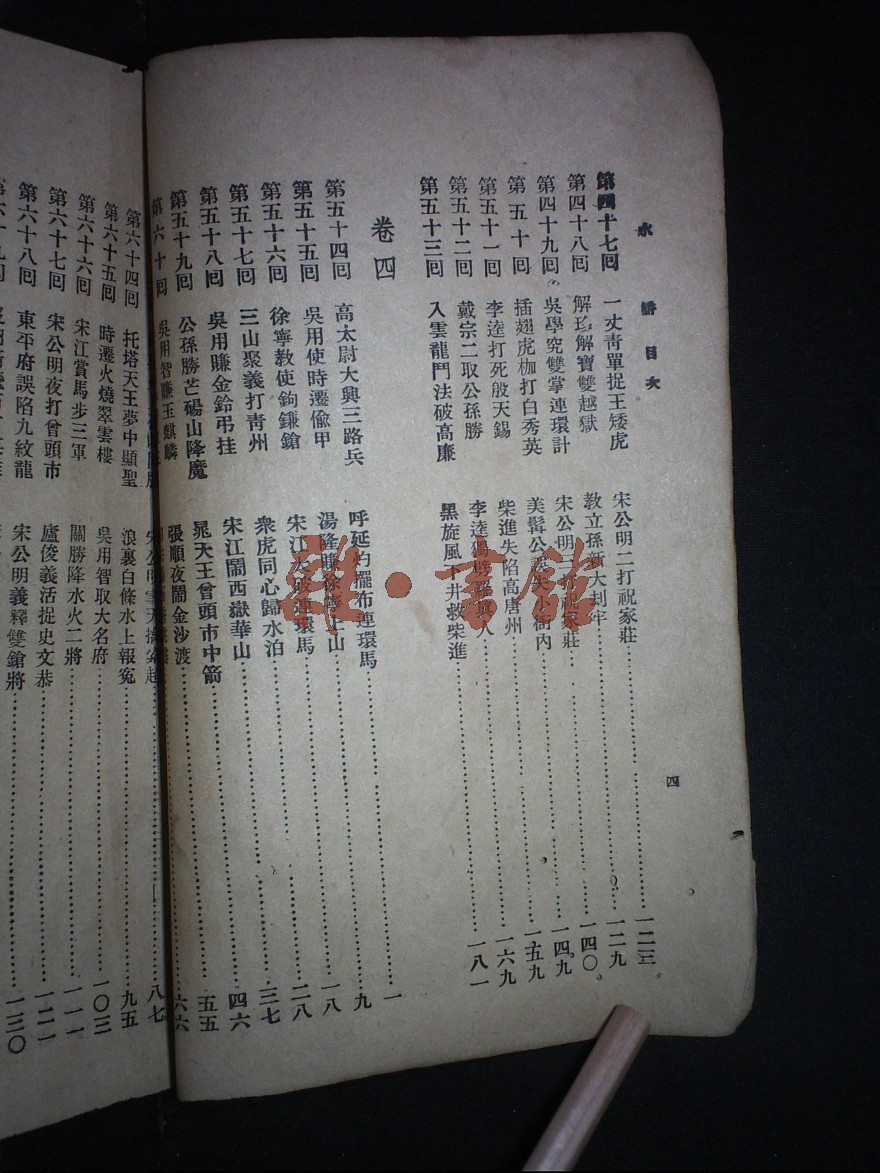 水滸目次
第四十七回 一丈青單捉王矮虎 宋公明二打祝家莊……一二三
第四十八回 解珍解寶雙越獄 教立孫新大刦牢……一二九
第四十九回 吳學究雙掌連環計 宋公明三打祝家莊……一四〇
第五十回 插翅虎枷打白秀英 美髯公誤失小衙內……一四九
第五十一回 李逵打死殷天錫 柴進失陷高唐州……一五九
第五十二回 戴宗二取公孫勝 李逵獨劈羅真人……一六九
第五十三回 入雲龍鬥法破高廉 黑旋風下井救柴進……一八一
卷四
第五十四回 高太尉大興三路兵 呼延灼擺布連環馬……一
第五十五回 吳用使時遷偷甲 湯隆賺徐寧上山……九
第五十六回 徐寧教使鉤鐮鎗 宋江大破連環馬……一八
第五十七回 三山聚義打青州 衆虎同心歸水泊……二八
第五十八回 吳用賺金鈴吊挂 宋江鬧西嶽華山……三七
第五十九回 公孫勝芒碭山降魔 晁天王曾頭市中箭……四六
第六十回 吳用智賺玉麒麟 張順夜鬧金沙渡……五五
六六
四
宋公明雪天擒索超……八七
第六十四回 托塔天王夢中顯聖 浪裏白條水上報冤……九五
第六十五回 時遷火燒翠雲樓 吳用智取大名府……一〇三
第六十六回 宋江賞馬步三軍 關勝降水火二將……一一一
第六十七回 宋公明夜打曾頭市 盧俊義活捉史文恭……一二一
第六十八回 東平府誤陷九紋龍 宋公明義釋雙鎗將……一三〇